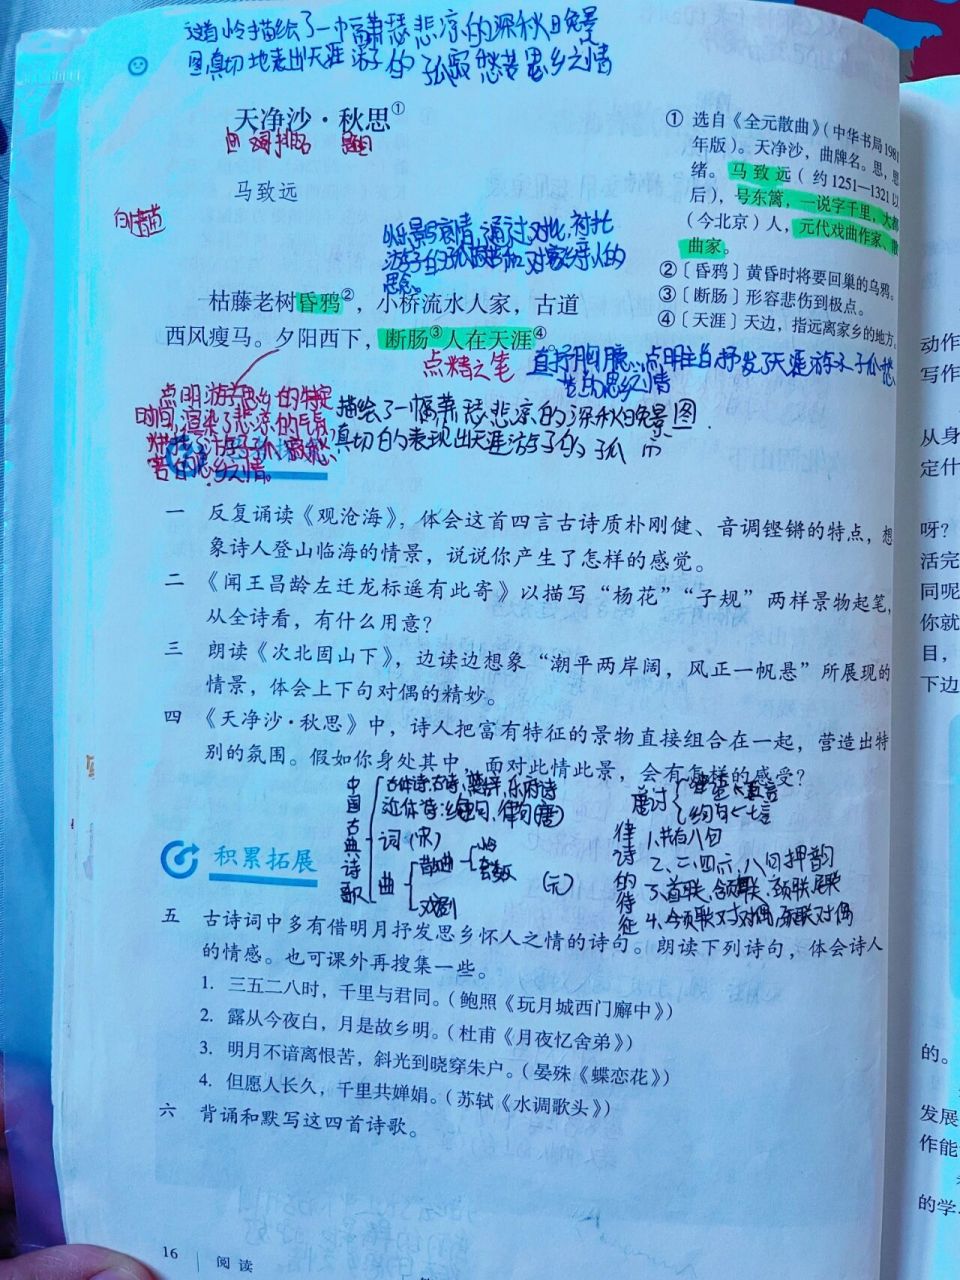 这首小令描绘了一幅萧瑟悲凉的深秋晚景
图真切地表出天涯游子的孤寂愁苦思乡之情
天净沙·秋思①
曲词排名 题目
马致远
① 选自《全元散曲》(中华书局1981
年版)。天净沙,曲牌名。思,思
绪。马致远(约1251—1321以
后),号东篱,一说字千里,大都
(今北京)人,元代戏曲作家、散
曲家。
②〔昏鸦〕黄昏时将要回巢的乌鸦。
③〔断肠〕形容悲伤到极点。
④〔天涯〕天边,指远离家乡的地方。
以乐景写哀情,通过对比,衬托
游子的孤寂和对家乡亲人的
思念。
枯藤老树昏鸦②,小桥流水人家,古道
西风瘦马。夕阳西下,断肠③人在天涯④。
点睛之笔
直抒胸臆,点明主旨抒发了天涯游子孤愁
苦的思乡之情
点明游子思乡的特定
时间,渲染了悲凉的气氛,
烘托了游子孤寂愁
苦的思乡之情。
描绘了一幅萧瑟悲凉的深秋晚景图.
真切的表现出天涯游子的孤
一 反复诵读《观沧海》,体会这首四言古诗质朴刚健、音调铿锵的特点,想
象诗人登山临海的情景,说说你产生了怎样的感觉。
二 《闻王昌龄左迁龙标遥有此寄》以描写“杨花”“子规”两样景物起笔,
从全诗看,有什么用意?
三 朗读《次北固山下》,边读边想象“潮平两岸阔,风正一帆悬”所展现的
情景,体会上下句对偶的精妙。
四 《天净沙·秋思》中,诗人把富有特征的景物直接组合在一起,营造出特
别的氛围。假如你身处其中,面对此情此景,会有怎样的感受?
中国古典诗歌
古体诗:古诗、楚辞、乐府诗
近体诗:绝句、律句(唐)
词(宋)
曲
散曲
小令
套数
戏剧
(元)
律诗的特征
1.共有八句
2、二、四六、八句押韵
3、首联、颔联、颈联、尾联
4、颔联对对偶,颈联对偶
积累拓展
五 古诗词中多有借明月抒发思乡怀人之情的诗句。朗读下列诗句,体会诗人
的情感。也可课外再搜集一些。
1. 三五二八时,千里与君同。(鲍照《玩月城西门廨中》)
2. 露从今夜白,月是故乡明。(杜甫《月夜忆舍弟》)
3. 明月不谙离恨苦,斜光到晓穿朱户。(晏殊《蝶恋花》)
4. 但愿人长久,千里共婵娟。(苏轼《水调歌头》)
六 背诵和默写这四首诗歌。
16 阅读
动作
写作
从身
定什
呀?
活完
同呢
你就
目,
下边
的。
发展
作能
的学